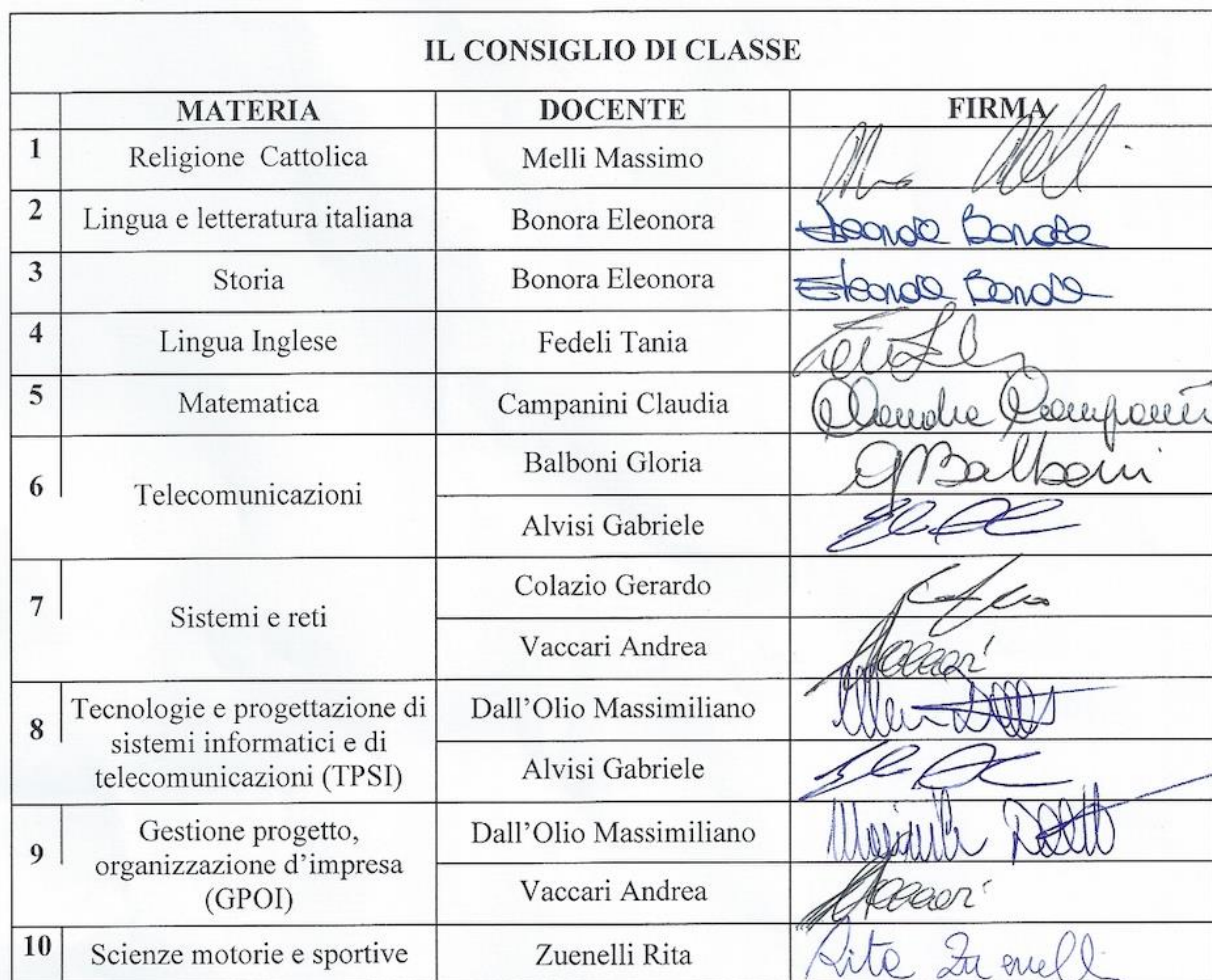 IL CONSIGLIO DI CLASSE
MATERIA DOCENTE FIRMA
1 Religione Cattolica Melli Massimo
2 Lingua e letteratura italiana Bonora Eleonora Eleonora Bonora
3 Storia Bonora Eleonora Eleonora Bonora
4 Lingua Inglese Fedeli Tania
5 Matematica Campanini Claudia Claudia Campanini
6 Telecomunicazioni
Balboni Gloria GBalboni
Alvisi Gabriele
7 Sistemi e reti
Colazio Gerardo
Vaccari Andrea Vaccari
8 Tecnologie e progettazione di
sistemi informatici e di
telecomunicazioni (TPSI)
Dall'Olio Massimiliano
Alvisi Gabriele
9 Gestione progetto,
organizzazione d'impresa
(GPOI)
Dall'Olio Massimiliano
Vaccari Andrea Vaccari
10 Scienze motorie e sportive Zuenelli Rita Rita Zuenelli